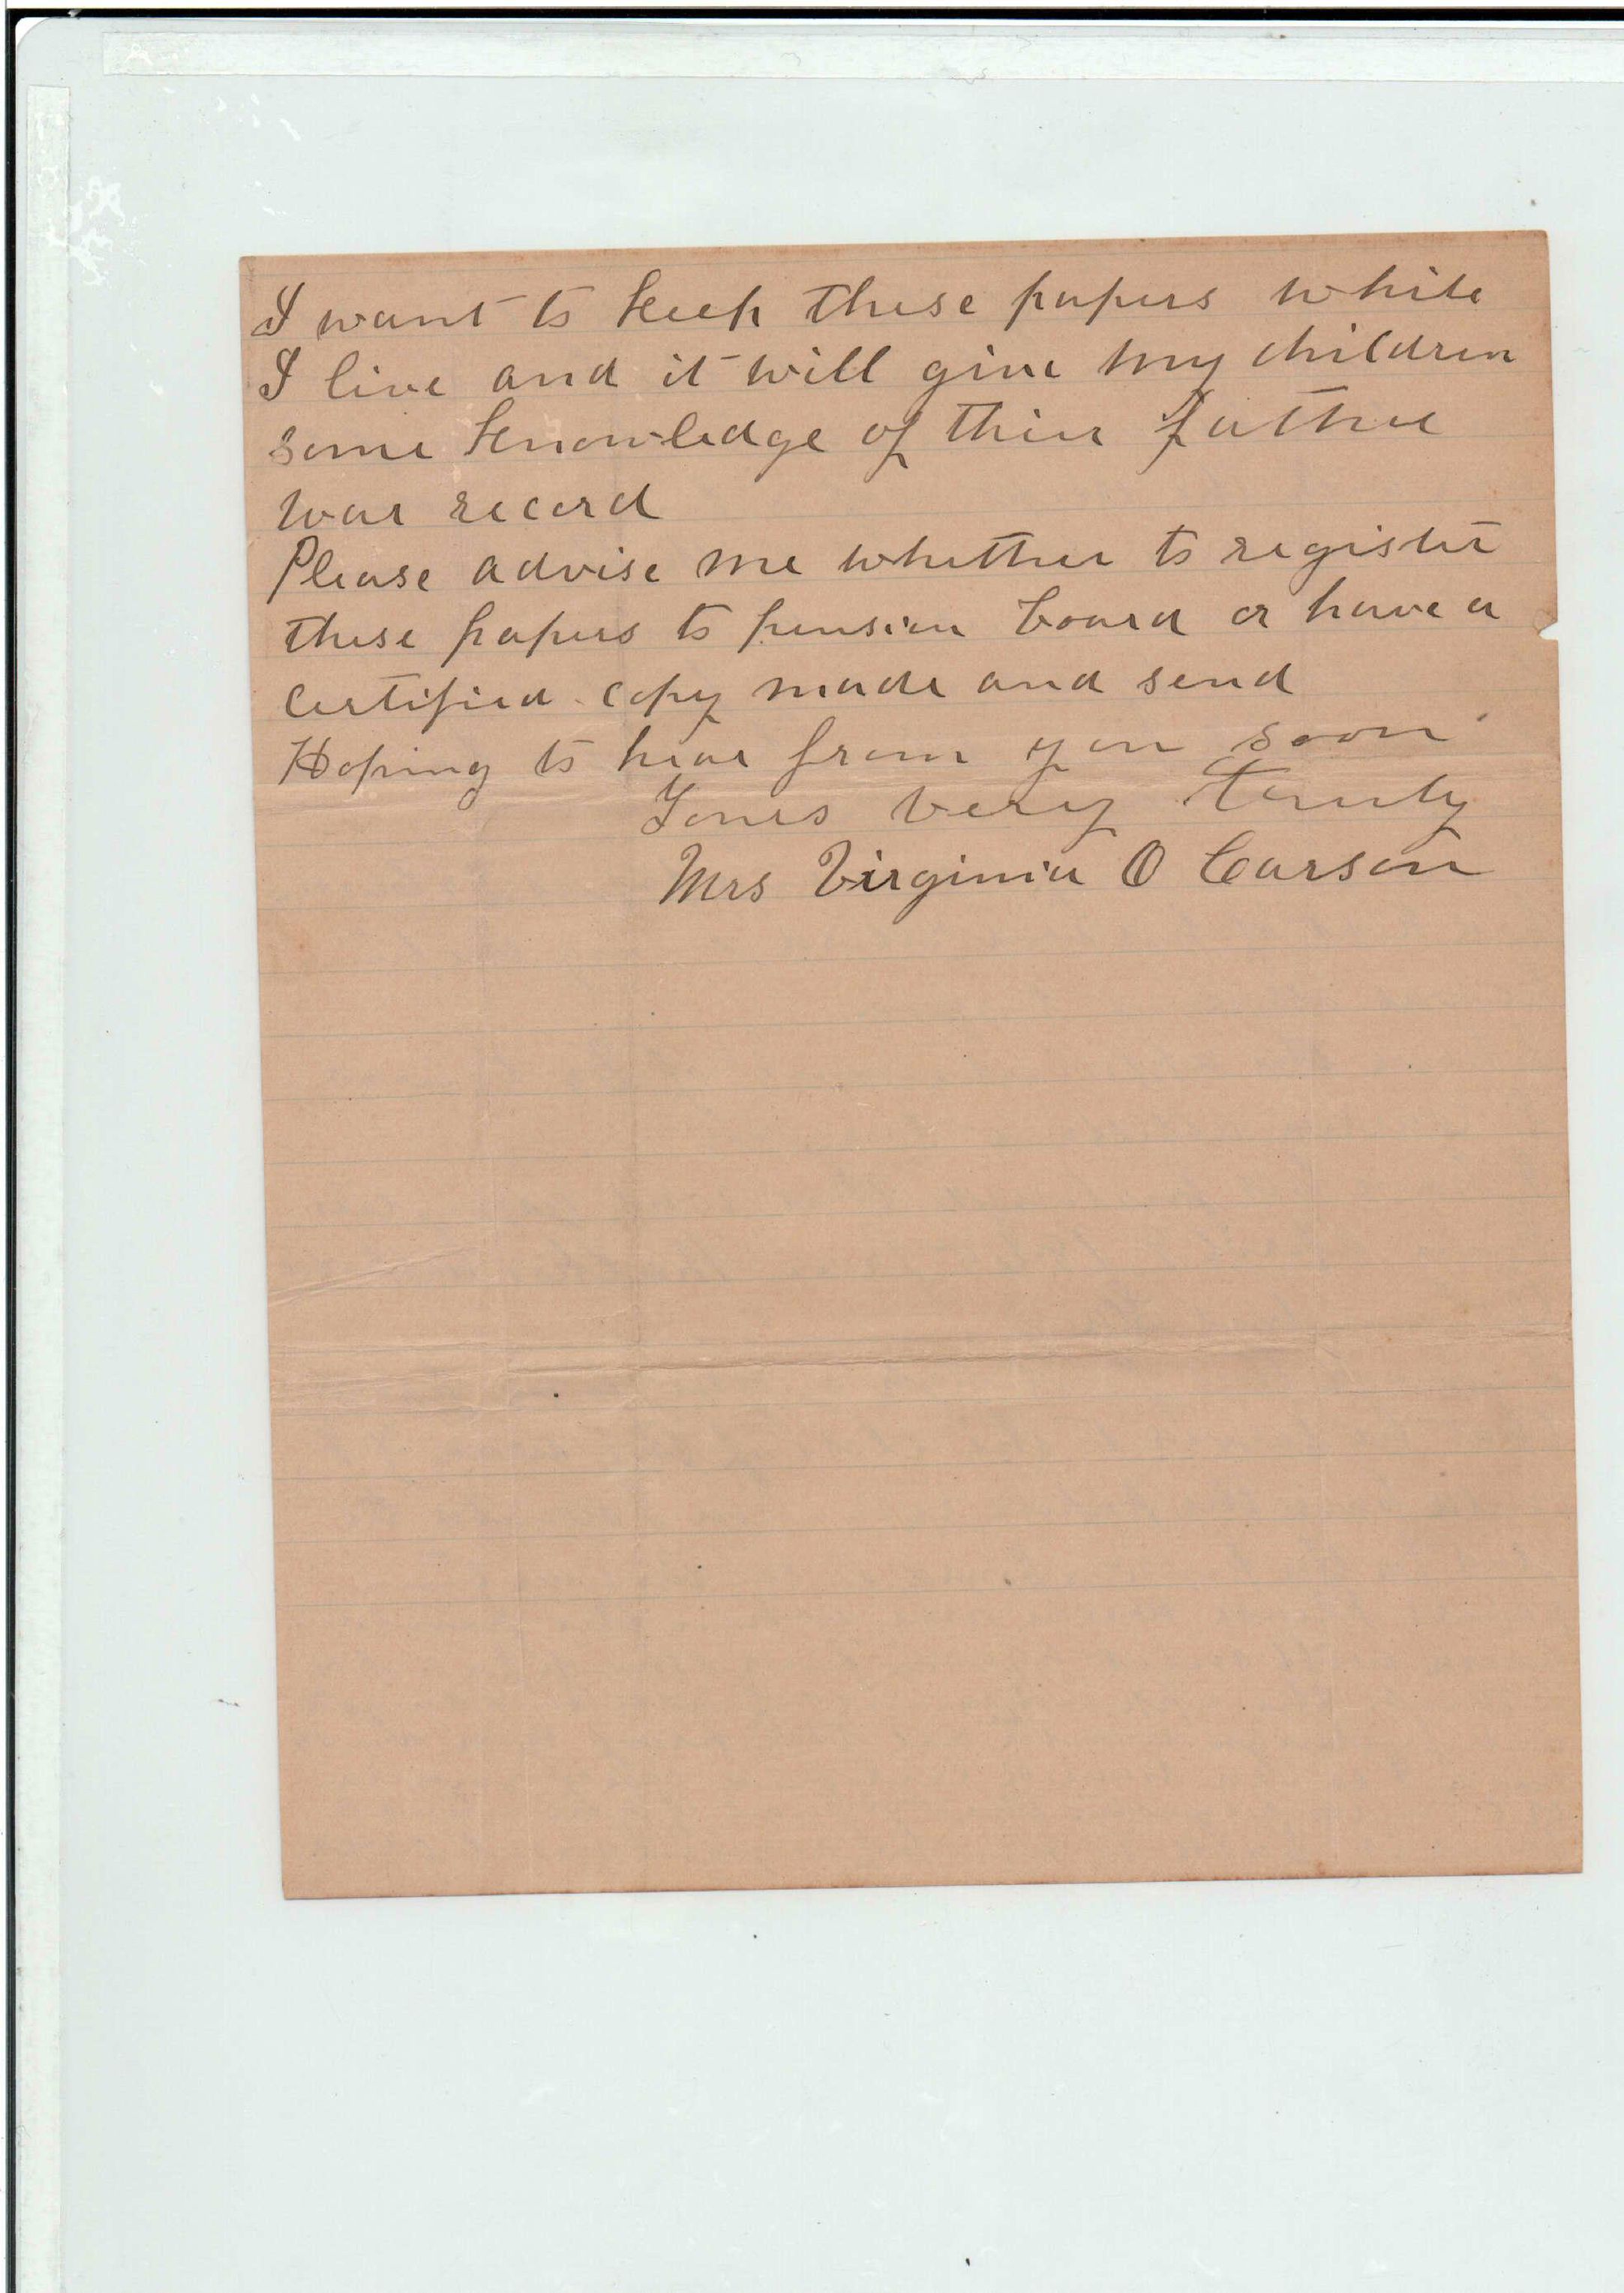 I want to keep these papers while
I live and it will give my children
some knowledge of thier father
war record
Please advise me whether to register
these papers to pension board or have a
certified copy made and send
Hoping to hear from you soon
Yours very truly
Mrs Virginia O Carson